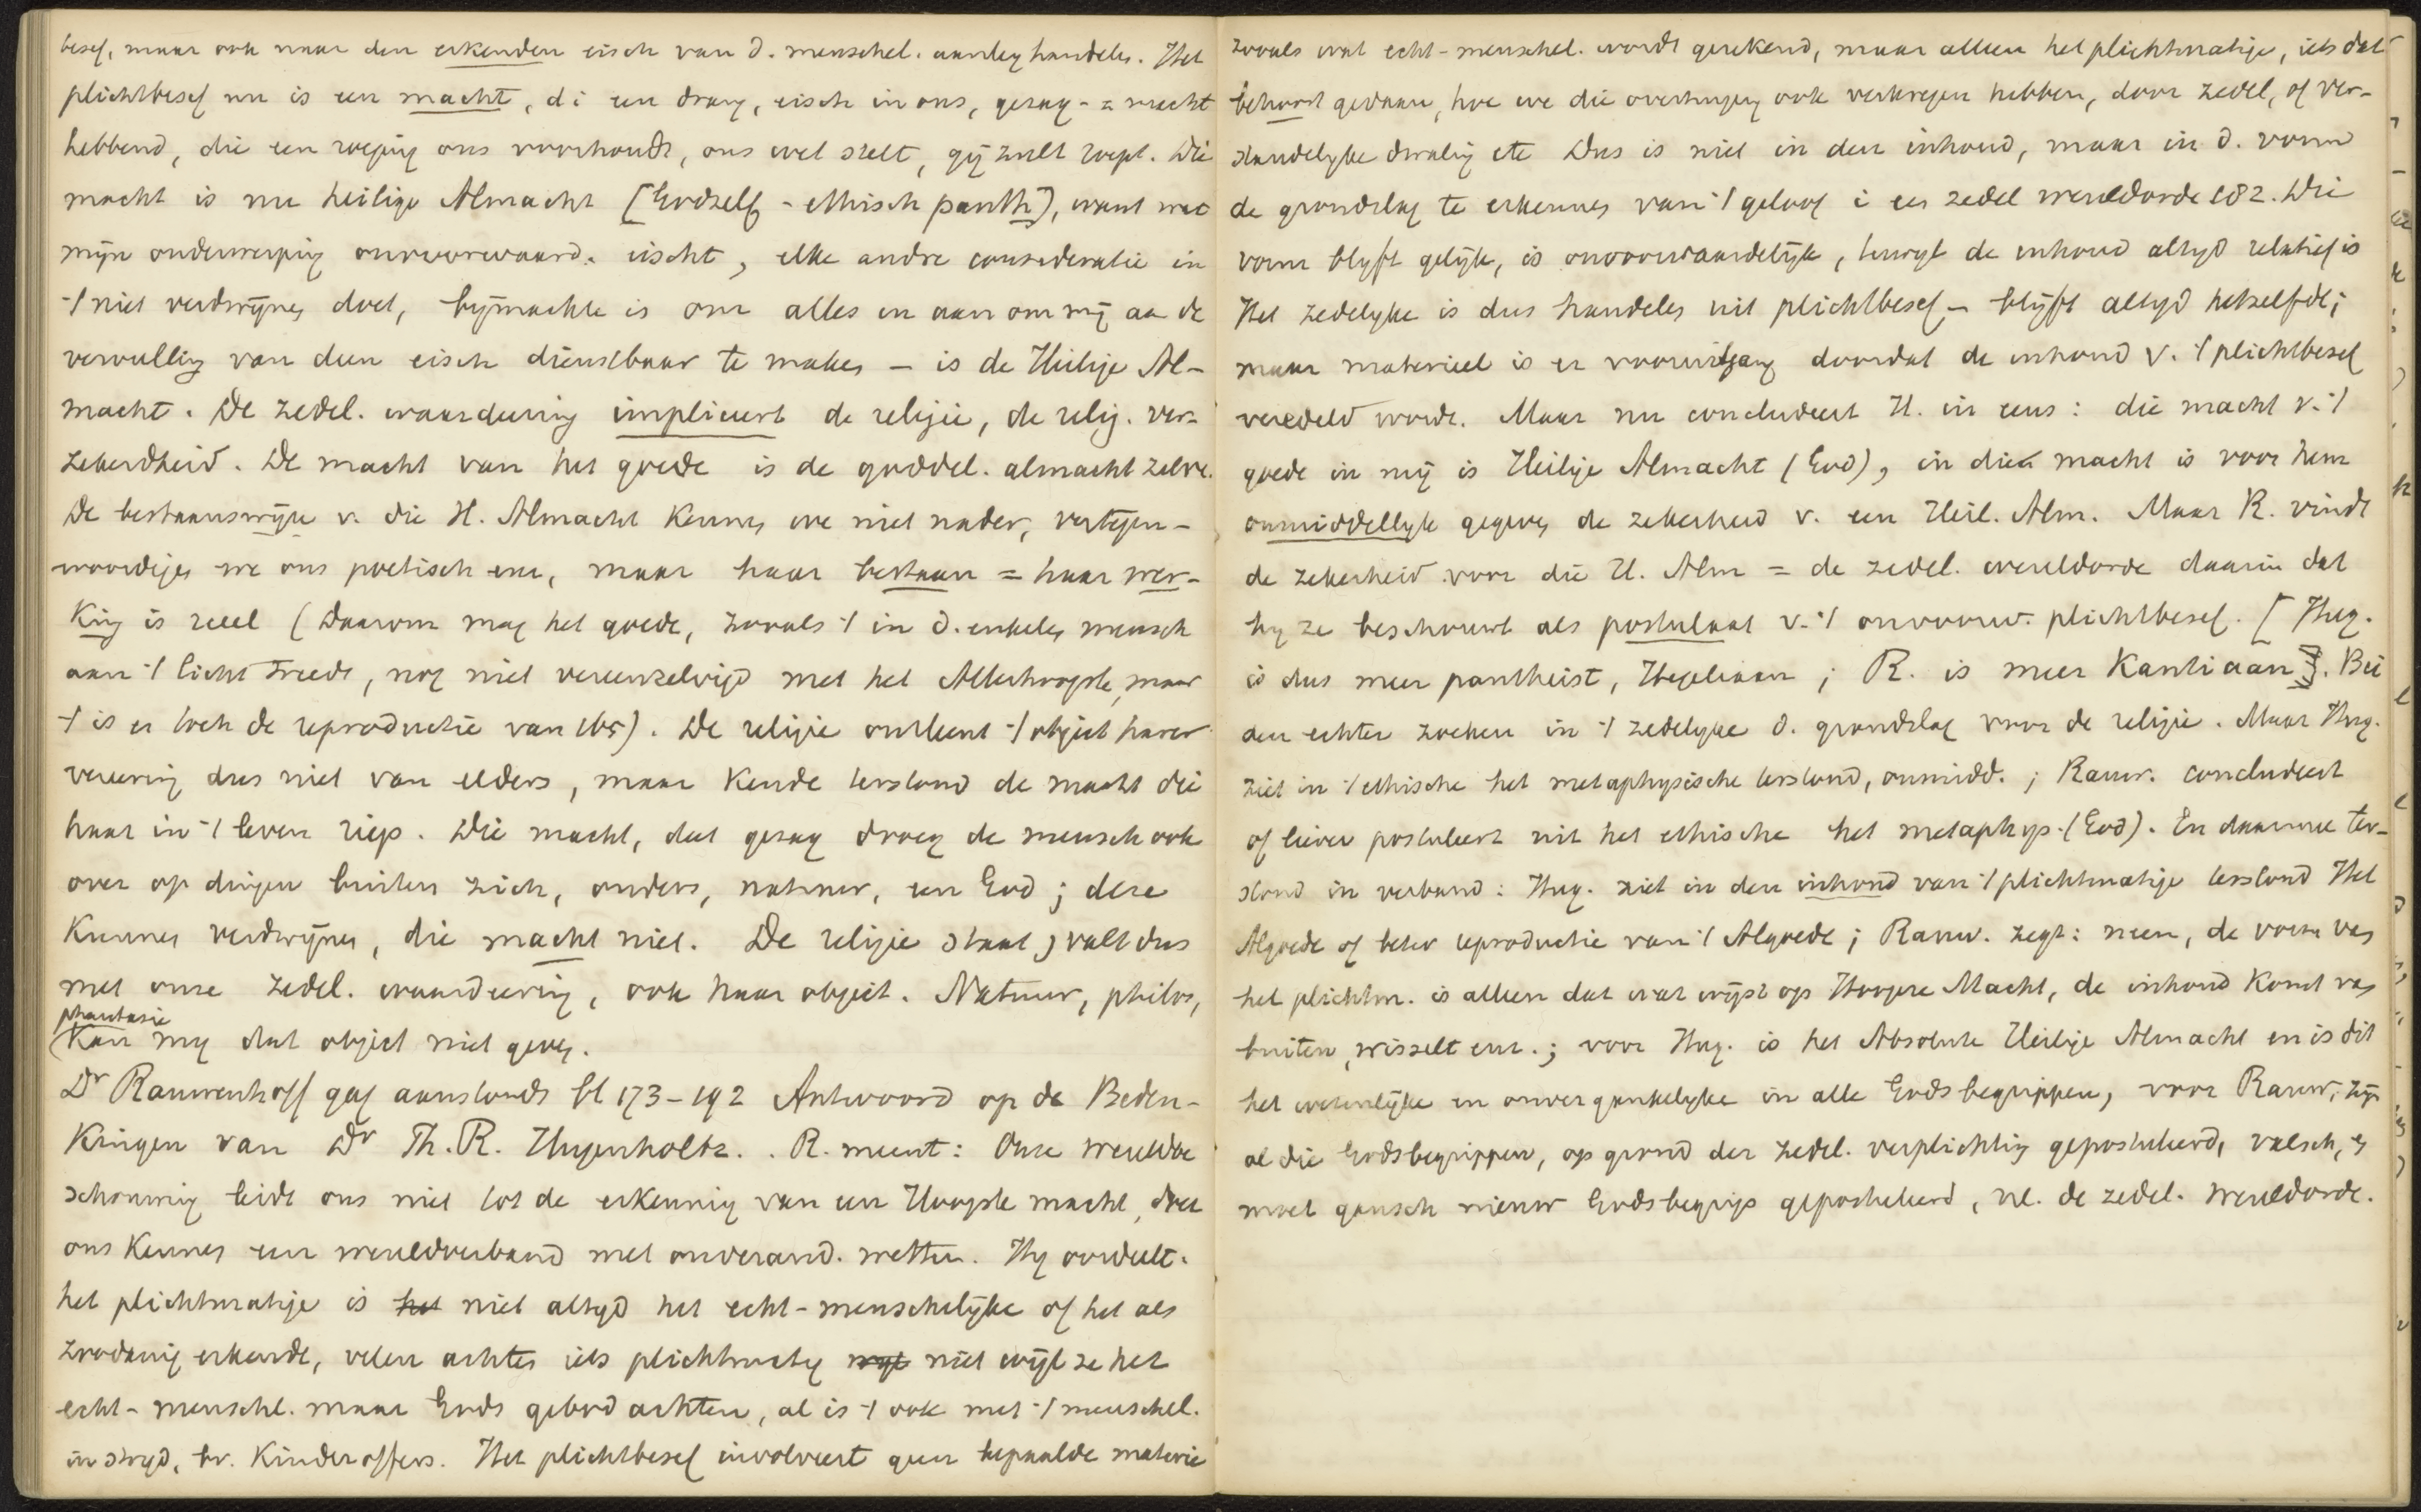 besef, maar ook naar den erkenden eisch van d. menschel. aanleg handelen. Het
plichtbesef nu is een macht, di een drang, eisch in ons, gezag- = macht
hebbend, die een roeping ons voorhoudt, ons wet stelt, gij zult roept. Die
macht is nu heilige Almacht [Godzelf - ethisch panth], want wat
mijn onderwerping onvoorwaard. eischt, elke andre consideratie in
't niet verdwijnen doet, bijmachte is om alles in aan om mij aan de
vervulling van dien eisch dienstbaar te maken - is de Heilige Al-
macht. De zedel. waardeering impliceert de religie, de relig. ver-
zekerdheid. De macht van het goede is de goddel. almacht zelve.
De bestaanswijze v. die H. Almacht kennen we niet nader, vertegen-
woordigen we ons poetisch enz, maar haar bestaan = haar wer-
king is reeel (Daarom mag het goede, zooals 't in d. enkelen mensch
aan 't licht treedt, nog niet vereenzelvigd met het Allerhoogste, maar
't is er toch de reproductie van 165). De religie ontleent 't object harer
vereering dus niet van elders, maar kende terstond de macht die
haar in 't leven riep. Die macht, dat gezag droeg de mensch ook
over op dingen buiten zich, anders, natuur, een God; deze
kunnen verdwijnen, die macht niet. De religie staat, valt dus
met onze zedel. waardeering, ook haar object. Natuur, philos,
phantasie
kan mij dat object niet geven.
Dr Rauwenhoff gaf aanstonds bl 173-192 Antwoord op de Beden-
kingen van Dr Th. R. Hugenholtz. . R. meent: Onze wereldbe
schouwing leidt ons niet tot de erkenning van een Hoogste macht, doet
ons kennen een wereldverband met onverand. wetten. Hij oordeelt.
het plichtmatige is het niet altijd het echt-menschelijke of het als
zoodanig erkende, velen achten iets plichtmatig wijl niet wijl ze het
echt-menschl. maar Gods gebod achten, al is 't ook met 't menschel.
in strijd, bv. Kinderoffers. Het plichtbesef involveert geen bepaalde materie
zooals wat echt-menschel. wordt gerekend, maar alleen het plichtmatige, iets dat
behoort gedaan, hoe we die overtuiging ook verkregen hebben, door zedel, of ver-
standelijke dwaling etc Dus is niet in den inhoud, maar in d. vorm
de grondslag te erkennen van 't geloof i een zedel wereldorde 182. Die
vorm blyft gelijk, is onvoorwaardelijk, terwyl de inhoud altyd relatief is
Het zedelyke is dus handelen uit plichtbesef - blijft altyd hetzelfde;
maar materieel is er vooruitgang doordat de inhoud v. 't plichtbesef
veredeld wordt. Maar nu concludeert H. in eens: die macht v. 't
goede in mij is Heilige Almacht (God), in die macht is voor hem
onmiddellyk gegeven de zekerheid v. een Heil. Alm. Maar R. vindt
de zekerheid voor die H. Alm = de zedel. wereldorde daarin dat
hy ze beschouwt als postulaat v. 't onvoorw. plichtbesef. [Hug.
is dus meer pantheist, Hegeliaan; R. is meer Kantiaan]. Bei
den echter zoeken in 't zedelyke d. grondslag voor de religie. Maar Hug.
ziet in 't ethische het metaphysische terstond, onmidd.; Rauw. concludeert
of liever postuleert uit het ethische het metaphys. (God). En daarmee ter-
stond in verband: Hug. ziet in den inhoud van 't plichtmatige terstond Het
Algoede of beter reproductie van 't Algoede; Rauw. zegt: neen, de vorm van
het plichtm. is alleen dat wat wijst op Hoogere Macht, de inhoud komt van
buiten, wisselt enz.; voor Hug. is het Absolute Heilige Almacht en is dit
het wezenlijke en onvergankelyke in alle Godsbegrippen, voor Rauw. zijn
al die Godsbegrippen, op grond der zedel. verplichting gepostuleerd, valsch, en
moet gansch nieuw Godsbegrip gepostuleerd, nl. de zedel. wereldorde.